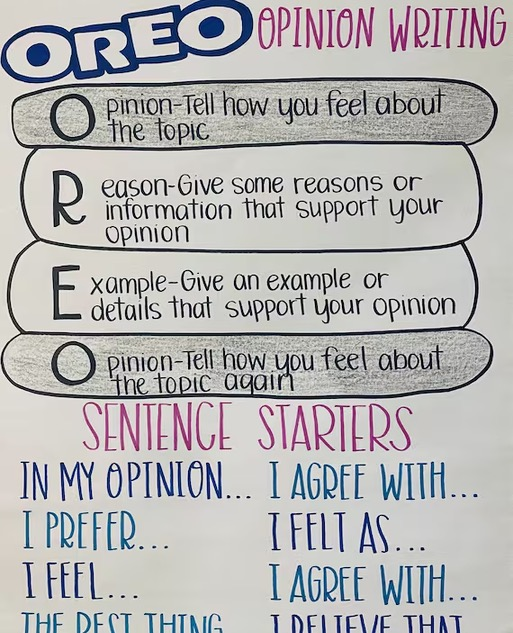 OREO OPINION WRITING
Opinion-Tell how you feel about
the topic
Reason-Give some reasons or
information that support your
opinion
Example-Give an example or
details that support your opinion
Opinion-Tell how you feel about
the topic again
SENTENCE STARTERS
IN MY OPINION... I AGREE WITH...
I PREFER... I FELT AS...
I FEEL... I AGREE WITH...
THE BEST THING I BELIEVE THAT